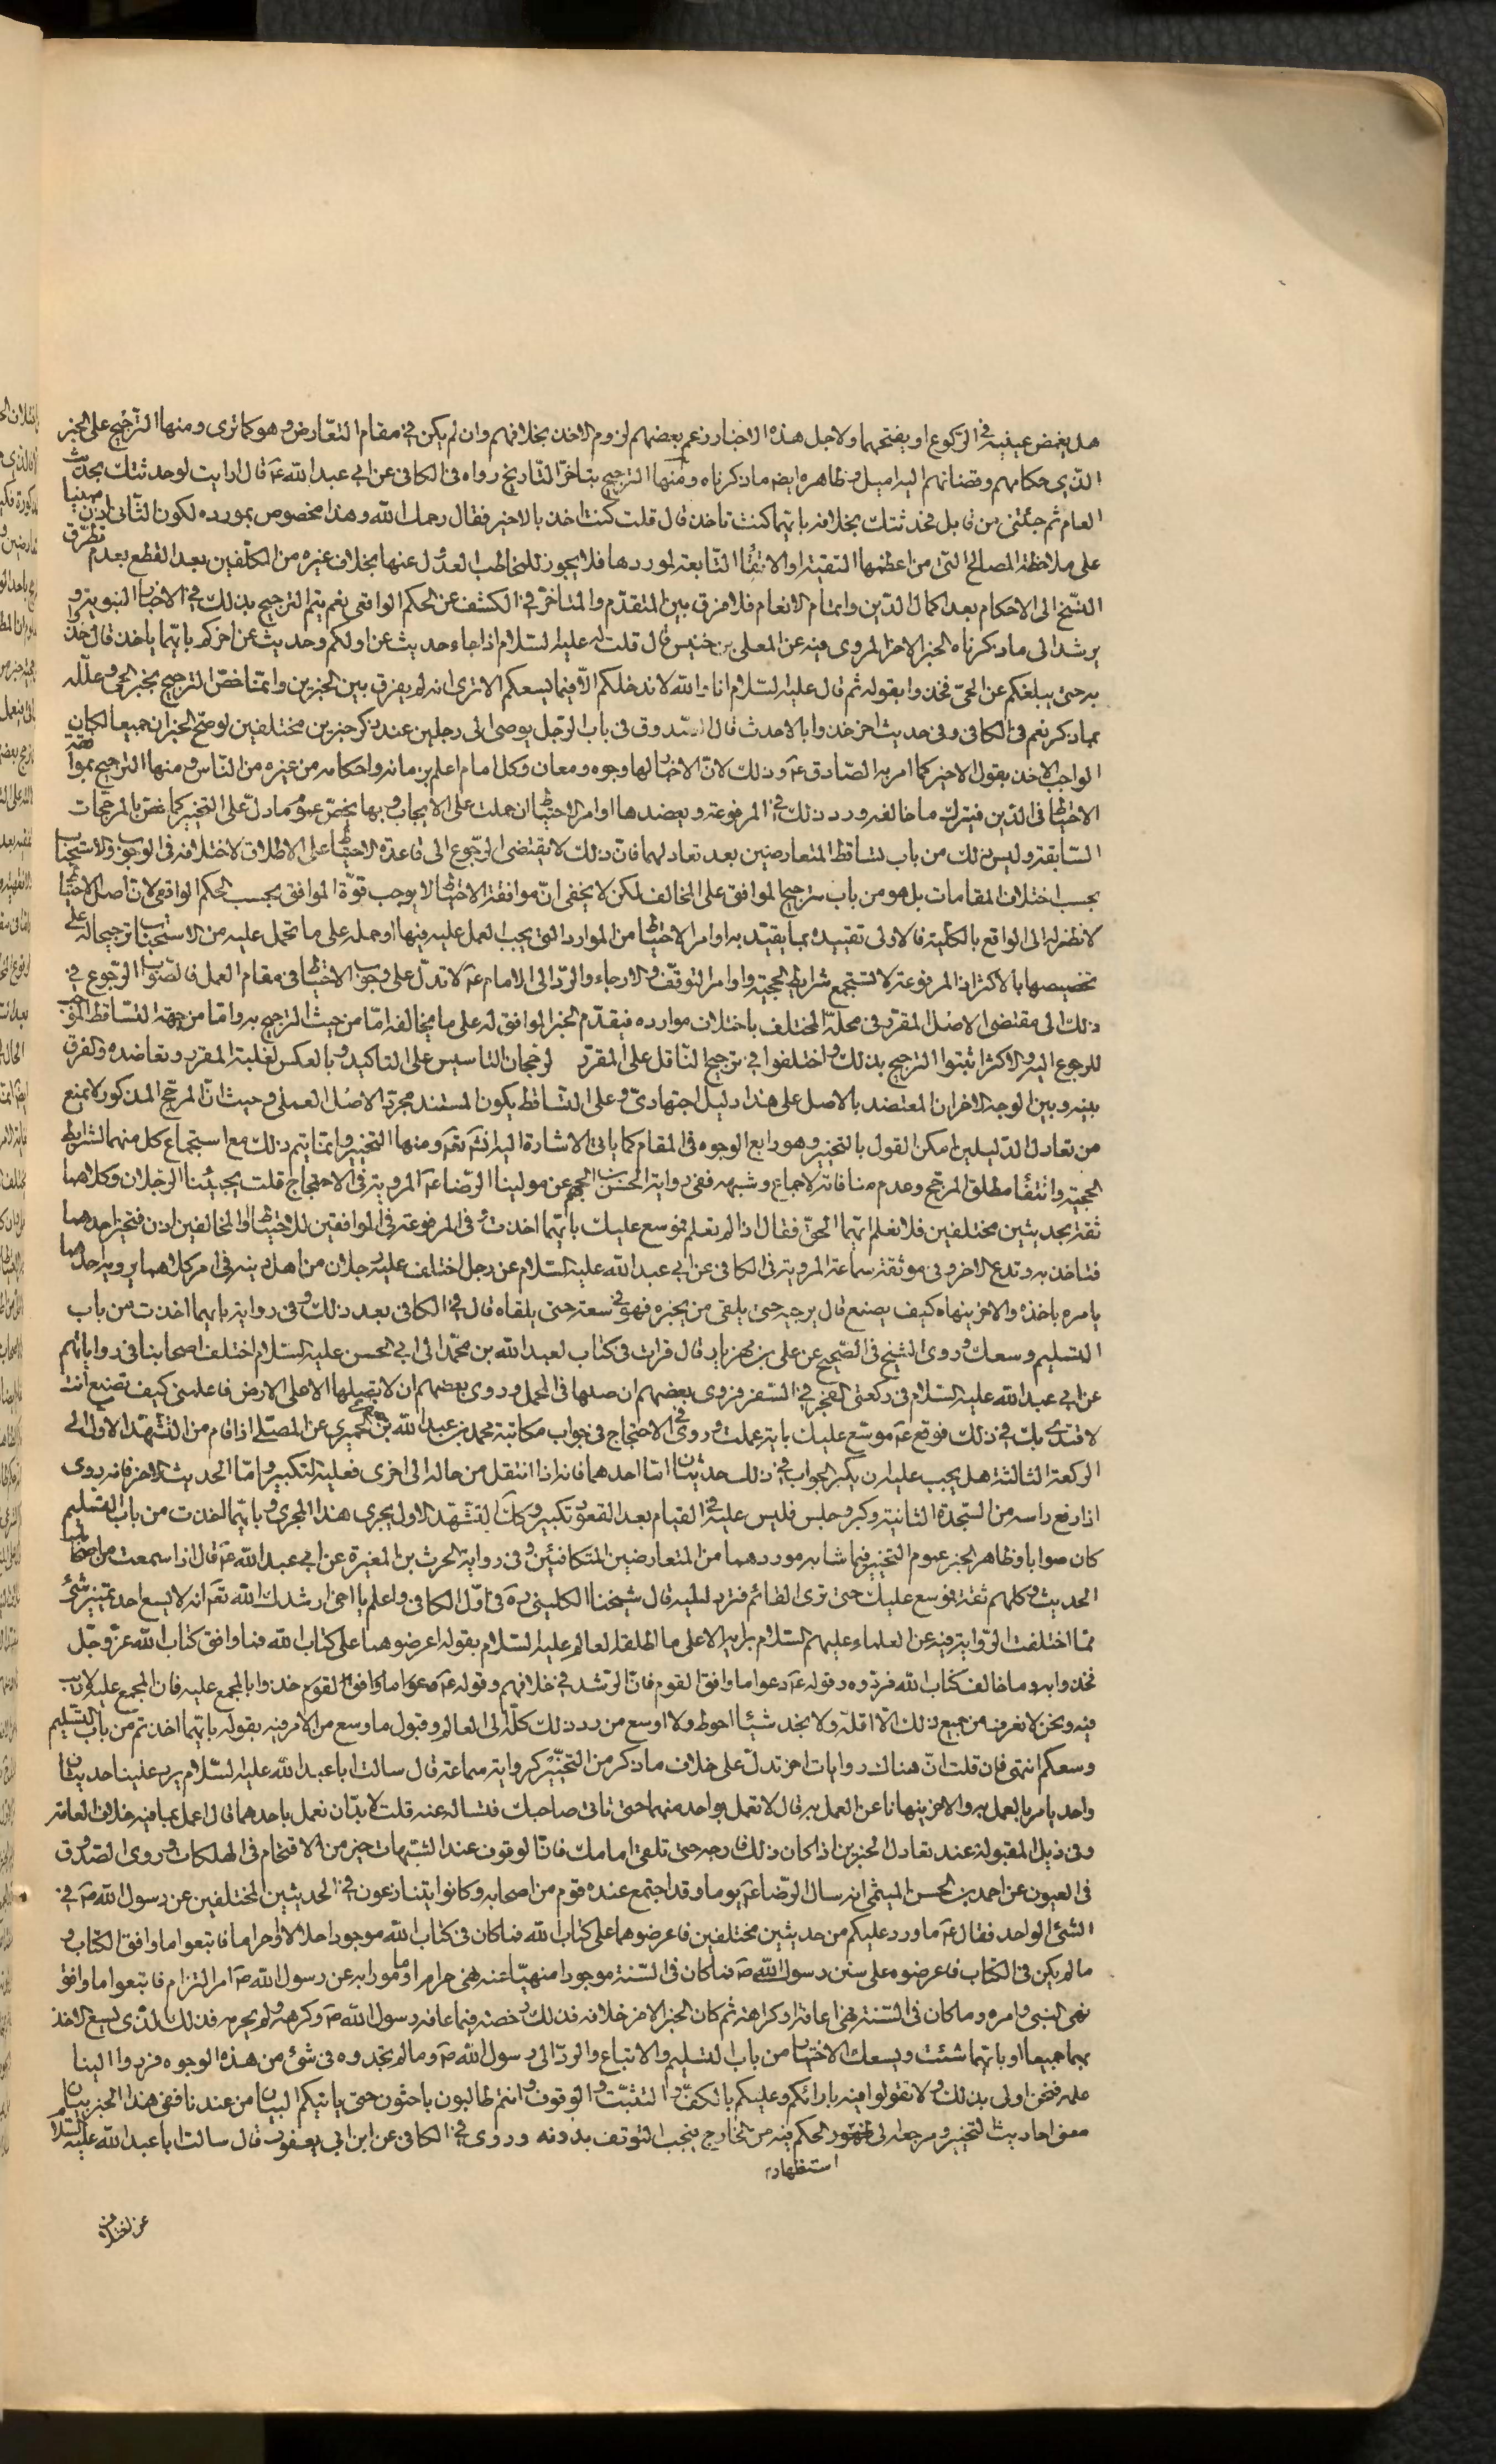 هل يغمض عينيه في الركوع او يفتحهما ولاجل هذه الاخبار زعم بعضهم لزوم الاخذ بخلافهم وان لم يكن في مقام التعارض وهو كما ترى ومنها الترجيح على الخبر
الذي حكامهم وقضاتهم اليه اميل وظاهره ايضا ماذكرناه ومنها الترجيح بتاخر التاريخ رواه في الكافي عن ابي عبد الله عه قال ارايت لو حدثتك بحديث
العام ثم جئتني من قابل فحدثتك بخلافه بايهما كنت تاخذ قال قلت كنت اخذ بالاخير فقال رحمك الله وهذا مخصوص بمورده لكون الثاني اذن مبنيا
على ملاحظة المصالح التي من اعظمها التقية او الاتقاء التابعة لموردها فلا يجوز للمخاطب العدول عنها بخلاف غيره من المكلفين بعد القطع بعدم تطرق
النسخ الى الاحكام بعد اكمال الدين واتمام الانعام فلا فرق بين المتقدم والمتاخر في الكشف عن الحكم الواقعي نعم يتم الترجيح بذلك في الاخبار النبوية و
يرشد الى ماذكرناه الخبر الاخر المروي فيه عن المعلى بن خنيس قال قلت له عليه السلام اذا جاء حديث عن اولكم وحديث عن اخركم بايهما ياخذ قال خذوا
به حتى يبلغكم عن الحي فخذوا بقوله ثم قال عليه السلام انا والله لا ندخلكم الا فيما يسعكم الا ترى انه لم يفرق بين الخبرين وانما خص الترجيح بخبر الحي وعلله
بماذكر نعم في الكافي وفي حديث اخر خذوا بالاحدث قال الصدوق في باب الرجل يوصى الى رجلين عند ذكر خبرين مختلفين لو صح الخبران جميعا لكان
الواجب الاخذ بقول الاخير كما امر به الصادق عه وذلك لان الاخبار لها وجوه ومعان وكل امام اعلم بزمانه واحكامه من غيره من الناس ومنها الترجيح بموافقة
الاحتياط في الدين فيترك ما خالفه ورد ذلك في المرفوعة ويعضدها اوامر الاحتياط ان حملت على الايجاب وبها يخص عموم مادل على التخيير كما خص بالمرجحات
السابقة وليس ذلك من باب تساقط المتعارضين بعد تعادلهما فان ذلك لا يقتضي الرجوع الى قاعدة الاحتياط على الاطلاق لاختلافه في الوجوب والاستحباب
بحسب اختلاف المقامات بل هو من باب ترجيح الموافق على المخالف لكن لا يخفى ان موافقة الاحتياط لا يوجب قوة الموافق بحسب الحكم الواقعي لان اصل الاحتياط
لا نظر له الى الواقع بالكلية فالاولى تقييده بما يقيد به اوامر الاحتياط من الموارد التي يجب العمل عليه فيها او حمله على ما تحمل عليه من الاستحباب ترجيحا له على
تخصيصها بالاكثر اذ المرفوعة لا تستجمع شرايط الحجية واوامر التوقف والارجاء والرد الى الامام عه لا تدل على وجوب الاحتياط في مقام العمل فالصواب الرجوع في
ذلك الى مقتضى الاصل المقرر في محله المختلف باختلاف موارده فيقدم الخبر الموافق له على ما يخالفه اما من حيث الترجيح به واما من جهة التساقط الموجب
للرجوع اليه والاكثر اثبتوا الترجيح بذلك واختلفوا في ترجيح الناقل على المقرر لرجحان التاسيس على التاكيد وبالعكس لغلبة المقرر وتعاضده والفرق
بينه وبين الوجه الاخر ان المعتضد بالاصل على هذا دليل اجتهادي وعلى التساقط يكون المستند مجرد الاصل العملي وحيث ان المرجح المذكور لا يمنع
من تعادل الدليلين امكن القول بالتخيير وهو رابع الوجوه في المقام كما ياتي الاشارة اليه انش تعه ومنها التخيير وانما يتم ذلك مع استجماع كل منهما لشرايط
الحجية وانتفاء مطلق المرجح وعدم منافاته لاجماع وشبهه ففي رواية الحسن بن الجهم عن مولينا الرضا عه المروية في الاحتجاج قلت يجيئنا الرجلان وكلاهما
ثقة بحديثين مختلفين فلا نعلم ايهما الحق فقال اذا لم تعلم فموسع عليك بايهما اخذت وفي المرفوعة في الموافقين للاحتياط او المخالفين اذن فتخير احدهما
فتاخذ به وتدع الاخر وفي موثقة سماعة المروية في الكافي عن ابي عبد الله عليه السلام عن رجل اختلف عليه رجلان من اهل دينه في امر كلاهما يرويه احدهما
يامره باخذه والاخر ينهاه كيف يصنع قال يرجيه حتى يلقى من يخبره فهو في سعة حتى يلقاه قال في الكافي بعد ذلك وفي رواية بايهما اخذت من باب
التسليم وسعك وروى الشيخ في الصحيح عن علي بن مهزيار قال قرات في كتاب لعبد الله بن محمد الى ابي الحسن عليه السلام اختلف اصحابنا في رواياتهم
عن ابي عبد الله عليه السلام في ركعتي الفجر في السفر فروى بعضهم ان صلها في المحمل وروى بعضهم ان لا تصلها الا على الارض فاعلمني كيف تصنع انت
لاقتدى بك في ذلك فوقع عه موسع عليك باية عملت وروى في الاحتجاج في جواب مكاتبة محمد بن عبد الله بن جعفر الحميري عن المصلي اذا قام من التشهد الاول الى
الركعة الثالثة هل يجب عليه ان يكبر الجواب في ذلك حديثان اما احدهما فانه اذا انتقل من حالة الى اخرى فعليه التكبير واما الحديث الاخر فانه روى
اذا رفع راسه من السجدة الثانية وكبر وجلس فليس عليه في القيام بعد القعود تكبير وكذلك التشهد الاول يجري هذا المجرى وبايهما اخذت من باب التسليم
كان صوابا وظاهر الخبر عموم التخيير فيما شابه موردهما من المتعارضين المتكافئين وفي رواية الحرث بن المغيرة عن ابي عبد الله عه قال اذا سمعت من اصحابك
الحديث وكلهم ثقة فموسع عليك حتى ترى القائم فترد اليه قال شيخنا الكليني ره في اول الكافي واعلم يا اخي ارشدك الله تعه انه لا يسع احد تمييز شئ
مما اختلفت الرواية فيه عن العلماء عليهم السلام برايه الا على ما اطلقه العالم عليه السلام بقوله اعرضوهما على كتاب الله فما وافق كتاب الله عز وجل
فخذوا به وما خالف كتاب الله فردوه وقوله عه دعوا ما وافق القوم فان الرشد في خلافهم وقوله عه خذوا بالمجمع عليه فان المجمع عليه لا ريب
فيه ونحن لا نعرف من جميع ذلك الا اقله ولا نجد شيئا احوط ولا اوسع من رد ذلك كله الى العالم وقبول ما وسع من الامر فيه بقوله بايهما اخذتم من باب التسليم
وسعكم انتهى فان قلت ان هناك روايات اخر تدل على خلاف ماذكر من التخيير كرواية سماعة قال سالت ابا عبد الله عليه السلام يرد علينا حديثان
واحد يامر بالعمل به والاخر ينهانا عن العمل به قال لا تعمل بواحد منهما حتى تاتي صاحبك فتساله عنه قلت لا بد ان نعمل باحدهما قال اعمل بما فيه خلاف العامة
وفي ذيل المقبولة عند تعادل الخبرين اذا كان ذلك فارجه حتى تلقى امامك فان الوقوف عند الشبهات خير من الاقتحام في الهلكات وروى الصدوق
في العيون عن احمد بن الحسن الميثمي انه سال الرضا عه يوما وقد اجتمع عنده قوم من اصحابه وكانوا يتنازعون في الحديثين المختلفين عن رسول الله ص في
الشئ الواحد فقال عه ما ورد عليكم من حديثين مختلفين فاعرضوهما على كتاب الله فما كان في كتاب الله موجودا حلالا او حراما فاتبعوا ما وافق الكتاب و
ما لم يكن في الكتاب فاعرضوه على سنن رسول الله ص فما كان في السنة موجودا منهيا عنه نهي حرام او مامورا به عن رسول الله ص امر الزام فاتبعوا ما وافق
نهي النبي وامره وما كان في السنة نهي اعافة او كراهة ثم كان الخبر الاخر خلافه فذلك رخصة فيما عافه رسول الله ص وكرهه ولم يحرمه فذلك الذي يسع الاخذ
بهما جميعا او بايهما شئت ويسعك الاختيار من باب التسليم والاتباع والرد الى رسول الله ص وما لم تجدوه في شئ من هذه الوجوه فردوا الينا
علمه فنحن اولى بذلك ولا تقولوا فيه بارائكم وعليكم بالكف والتثبت والوقوف وانتم طالبون باحثون حتى ياتيكم البيان من عندنا ففي هذا الخبر بيان
معنى احاديث التخيير ومرجعه الى ظهور الحكم فيه من خارج فيجب التوقف بدونه وروى في الكافي عن ابن ابي يعفور قال سالت ابا عبد الله عليه السلام
استظهار
عن اختلاف